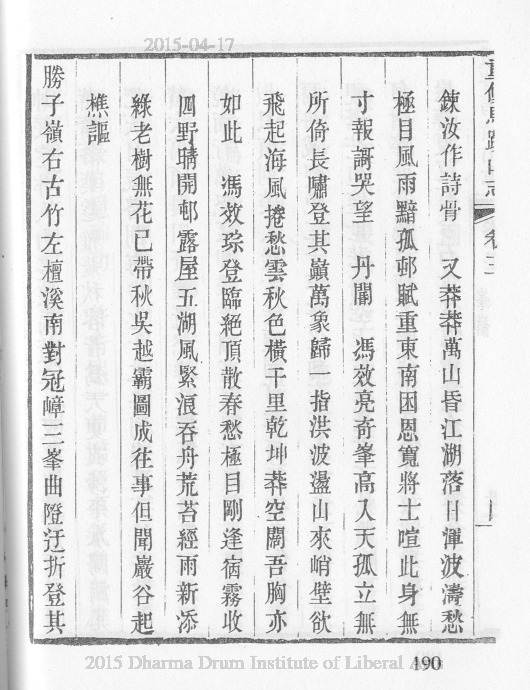 2015-04-17
重修馬蹟山志 卷三
鍊汝作詩骨 又莽莽萬山昏江湖落日渾波濤愁
極目風雨黯孤邨賦重東南困恩寬將士喧此身無
寸報謌哭望 丹闕 馮效亮奇峯高入天孤立無
所倚長嘯登其巔萬象歸一指洪波盪山來峭壁欲
飛起海風捲愁雲秋色橫千里乾坤莽空闊吾胸亦
如此 馮效琮登臨絕頂散春愁極目剛逢宿霧收
四野晴開邨露屋五湖風緊浪吞舟荒苔經雨新添
綠老樹無花已帶秋吳越霸圖成往事但聞巖谷起
樵謳
勝子嶺右古竹左檀溪南對冠嶂三峯曲隥迂折登其
2015 Dharma Drum Institute of Liberal
490